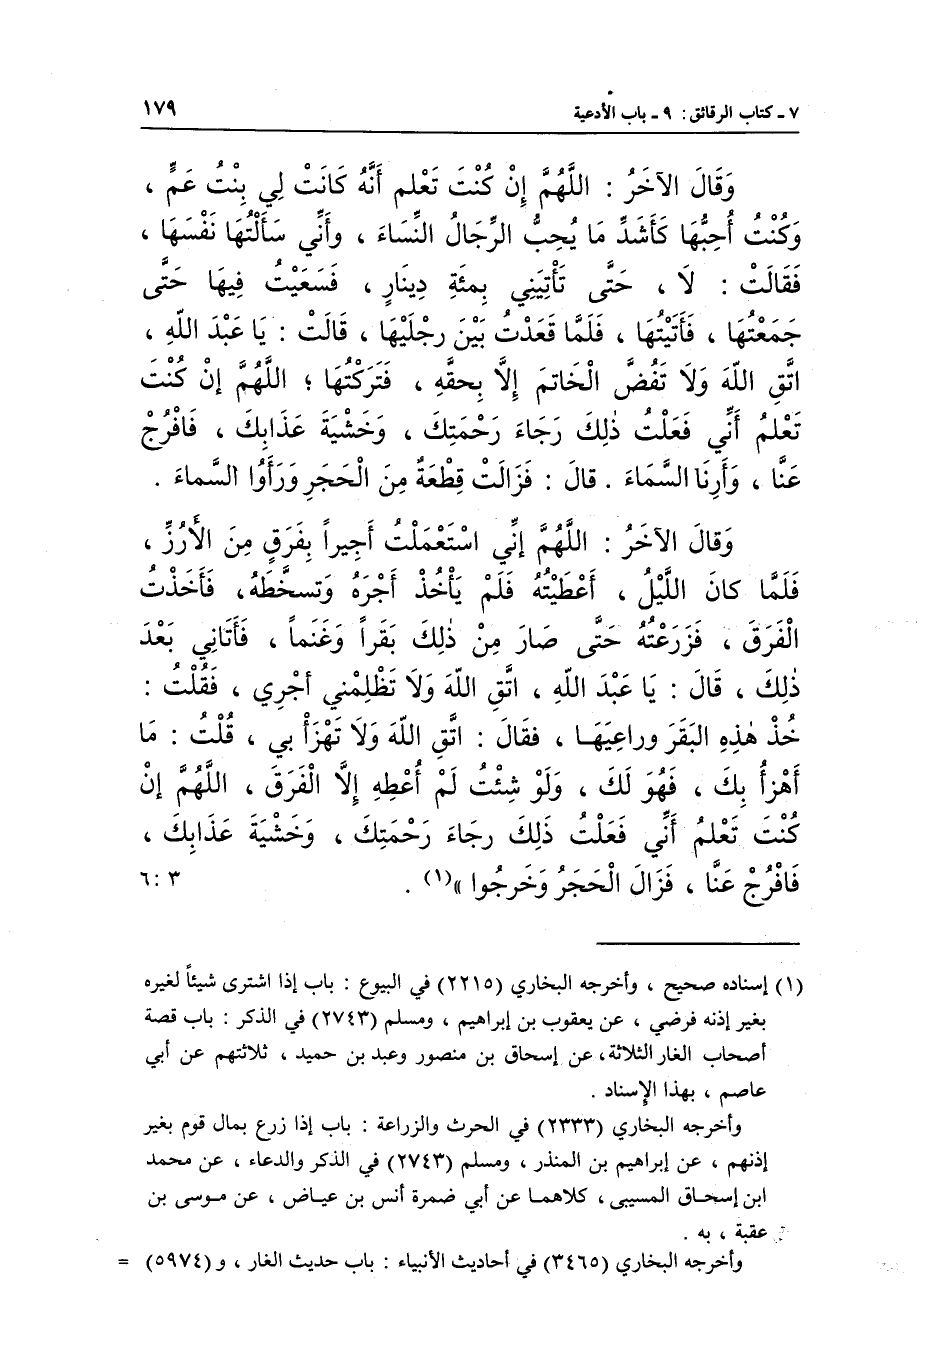 ٧ - كتاب الرقائق : ٩ - باب الأدعية ١٧٩
وَقَالَ الآخَرُ : اللَّهُمَّ إِنْ كُنْتَ تَعْلَم أَنَّهُ كَانَتْ لِي بِنْتُ عَمٍّ ،
وَكُنْتُ أُحِبُّهَا كَأَشَدِّ مَا يُحِبُّ الرِّجَالُ النِّسَاءَ ، وأَنِّي سَأَلْتُهَا نَفْسَهَا ،
فَقَالَتْ : لَا ، حَتَّى تَأْتِيَنِي بِمئَةِ دِينَارٍ ، فَسَعَيْتُ فِيهَا حَتَّى
جَمَعْتُهَا ، فَأَتَيْتُهَا ، فَلَمَّا قَعَدْتُ بَيْنَ رِجْلَيْهَا ، قَالَتْ : يَا عَبْدَ اللَّهِ ،
اتَّقِ اللَّهَ وَلَا تَفُضَّ الْخَاتمَ إِلَّا بِحقِّهِ ، فَتَرَكْتُهَا ؛ اللَّهُمَّ إنْ كُنْتَ
تَعْلمُ أَنِّي فَعَلْتُ ذٰلِكَ رَجَاءَ رَحْمَتِكَ ، وَخَشْيَةَ عَذَابِكَ ، فَافْرُجْ
عَنَّا ، وَأَرِنَا السَّمَاءَ . قالَ : فَزَالَتْ قِطْعَةٌ مِنَ الْحَجَرِ وَرَأَوُا السَّماءَ .
وَقَالَ الآخَرُ : اللَّهُمَّ إنِّي اسْتَعْمَلْتُ أَجِيراً بِفَرَقٍ مِنَ الأَرُزِّ ،
فَلَمَّا كانَ اللَّيْلُ ، أَعْطَيْتُهُ فَلَمْ يَأْخُذْ أَجْرَهُ وَتَسخَّطَهُ، فَأَخَذْتُ
الْفَرَقَ ، فَزَرَعْتُهُ حَتَّى صَارَ مِنْ ذٰلِكَ بَقَراً وَغَنَماً ، فَأَتَانِي بَعْدَ
ذٰلِكَ ، قَالَ : يَا عَبْدَ اللَّهِ ، اتَّقِ اللَّهَ وَلَا تَظْلِمْني أجْرِي ، فَقُلْتُ :
خُذْ هٰذِهِ البَقَرَ وراعِيَهَا ، فقَالَ : اتَّقِ اللَّهَ وَلَا تَهْزَأْ بي ، قُلْتُ : مَا
أَهْزأُ بِكَ ، فَهُوَ لَكَ ، وَلَوْ شِئْتُ لَمْ أُعْطِهِ إِلَّا الْفَرَقَ ، اللَّهُمَّ إنْ
كُنْتَ تَعْلمُ أَنِّي فَعَلْتُ ذَلِكَ رجَاءَ رَحْمَتِكَ ، وَخَشْيَةَ عَذَابِكَ ،
فَافْرُجْ عَنَّا ، فَزَالَ الْحَجَرُ وَخَرجُوا »(١) . ٦:٣
(١) إسناده صحيح ، وأخرجه البخاري (٢٢١٥) في البيوع : باب إذا اشترى شيئاً لغيره
بغير إذنه فرضي ، عن يعقوب بن إبراهيم ، ومسلم (٢٧٤٣) في الذكر : باب قصة
أصحاب الغار الثلاثة، عن إسحاق بن منصور وعبد بن حميد ، ثلاثتهم عن أبي
عاصم ، بهذا الإسناد .
وأخرجه البخاري (٢٣٣٣) في الحرث والزراعة : باب إذا زرع بمال قوم بغير
إذنهم ، عن إبراهيم بن المنذر ، ومسلم (٢٧٤٣) في الذكر والدعاء ، عن محمد
ابن إسحاق المسيبى ، كلاهما عن أبي ضمرة أنس بن عياض ، عن موسى بن
عقبة ، به .
وأخرجه البخاري (٣٤٦٥) في أحاديث الأنبياء : باب حديث الغار ، و (٥٩٧٤) =